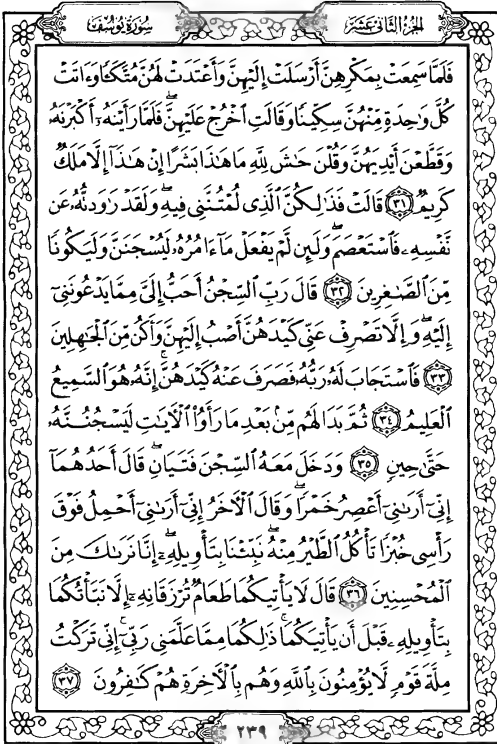 سُورَةُ يُوسُفَ
الجُزءُ الثَّانِى عَشَرَ
فَلَمَّا سَمِعَتْ بِمَكْرِهِنَّ أَرْسَلَتْ إِلَيْهِنَّ وَأَعْتَدَتْ لَهُنَّ مُتَّكَـًٔا وَءَاتَتْ
كُلَّ وَٰحِدَةٍ مِّنْهُنَّ سِكِّينًا وَقَالَتِ ٱخْرُجْ عَلَيْهِنَّ ۖ فَلَمَّا رَأَيْنَهُۥٓ أَكْبَرْنَهُۥ
وَقَطَّعْنَ أَيْدِيَهُنَّ وَقُلْنَ حَٰشَ لِلَّهِ مَا هَٰذَا بَشَرًا إِنْ هَٰذَآ إِلَّا مَلَكٌ
كَرِيمٌ ﴿٣١﴾ قَالَتْ فَذَٰلِكُنَّ ٱلَّذِى لُمْتُنَّنِى فِيهِ ۖ وَلَقَدْ رَٰوَدتُّهُۥ عَن
نَّفْسِهِۦ فَٱسْتَعْصَمَ ۖ وَلَئِن لَّمْ يَفْعَلْ مَآ ءَامُرُهُۥ لَيُسْجَنَنَّ وَلَيَكُونًا
مِّنَ ٱلصَّٰغِرِينَ ﴿٣٢﴾ قَالَ رَبِّ ٱلسِّجْنُ أَحَبُّ إِلَىَّ مِمَّا يَدْعُونَنِىٓ
إِلَيْهِ ۖ وَإِلَّا تَصْرِفْ عَنِّى كَيْدَهُنَّ أَصْبُ إِلَيْهِنَّ وَأَكُن مِّنَ ٱلْجَٰهِلِينَ
﴿٣٣﴾ فَٱسْتَجَابَ لَهُۥ رَبُّهُۥ فَصَرَفَ عَنْهُ كَيْدَهُنَّ ۚ إِنَّهُۥ هُوَ ٱلسَّمِيعُ
ٱلْعَلِيمُ ﴿٣٤﴾ ثُمَّ بَدَا لَهُم مِّنۢ بَعْدِ مَا رَأَوُا۟ ٱلْءَايَٰتِ لَيَسْجُنُنَّهُۥ
حَتَّىٰ حِينٍ ﴿٣٥﴾ وَدَخَلَ مَعَهُ ٱلسِّجْنَ فَتَيَانِ ۖ قَالَ أَحَدُهُمَآ
إِنِّىٓ أَرَىٰنِىٓ أَعْصِرُ خَمْرًا ۖ وَقَالَ ٱلْءَاخَرُ إِنِّىٓ أَرَىٰنِىٓ أَحْمِلُ فَوْقَ
رَأْسِى خُبْزًا تَأْكُلُ ٱلطَّيْرُ مِنْهُ ۖ نَبِّئْنَا بِتَأْوِيلِهِۦٓ ۖ إِنَّا نَرَىٰكَ مِنَ
ٱلْمُحْسِنِينَ ﴿٣٦﴾ قَالَ لَا يَأْتِيكُمَا طَعَامٌ تُرْزَقَانِهِۦٓ إِلَّا نَبَّأْتُكُمَا
بِتَأْوِيلِهِۦ قَبْلَ أَن يَأْتِيَكُمَا ۚ ذَٰلِكُمَا مِمَّا عَلَّمَنِى رَبِّىٓ ۚ إِنِّى تَرَكْتُ
مِلَّةَ قَوْمٍ لَّا يُؤْمِنُونَ بِٱللَّهِ وَهُم بِٱلْءَاخِرَةِ هُمْ كَٰفِرُونَ ﴿٣٧﴾
٢٣٩